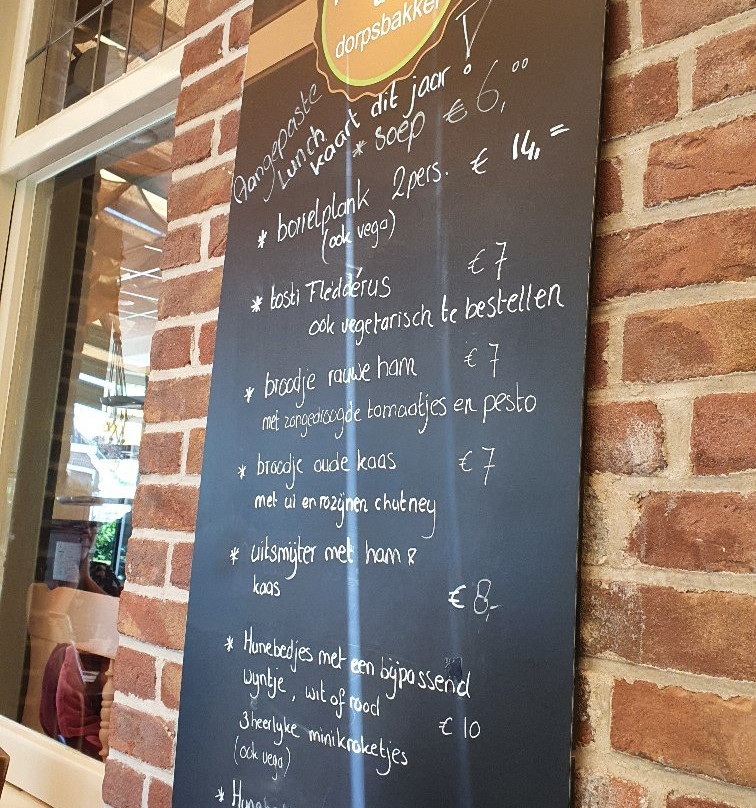 dorpsbakker
Aangepaste
Lunch
kaart dit jaar!
* Soep € 6,00
* borrelplank 2pers. € 14,=
(ook vega)
* tosti Fledderus € 7
ook vegetarisch te bestellen
* broodje rauwe ham € 7
met zongedroogde tomaatjes en pesto
* broodje oude kaas € 7
met ui en rozijnen chutney
* uitsmijter met ham &
kaas € 8,-
* Hunebedjes met een bijpassend
wyntje, wit of rood € 10
3 heerlyke minikroketjes
(ook vega)